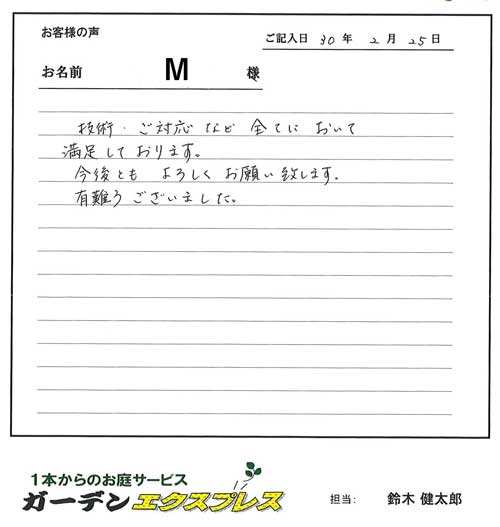 お客様の声
ご記入日 30 年 2 月 25 日
お名前 M 様
技術・ご対応など全てにおいて
満足しております。
今後ともよろしくお願い致します。
有難うございました。
1本からのお庭サービス
ガーデンエクスプレス
担当: 鈴木 健太郎